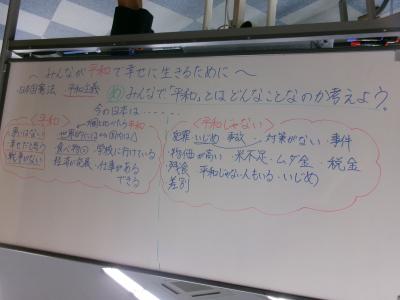 ～みんなが平和で幸せに生きるために～
日本国憲法 平和主義 め みんなで「平和」とはどんなことなのか考えよう。
今の日本は……
＜平和＞
悪くはない
幸せだと思う
戦争がない
世界的には
食べ物 ・学校に行けている
仕事がある
できる
＜平和じゃない＞
・犯罪 いじめ 事故 ・対策がない・事件
・物価が高い ・米不足・ムダ金・税金
・残食 平和じゃない人もいる・いじめ
差別